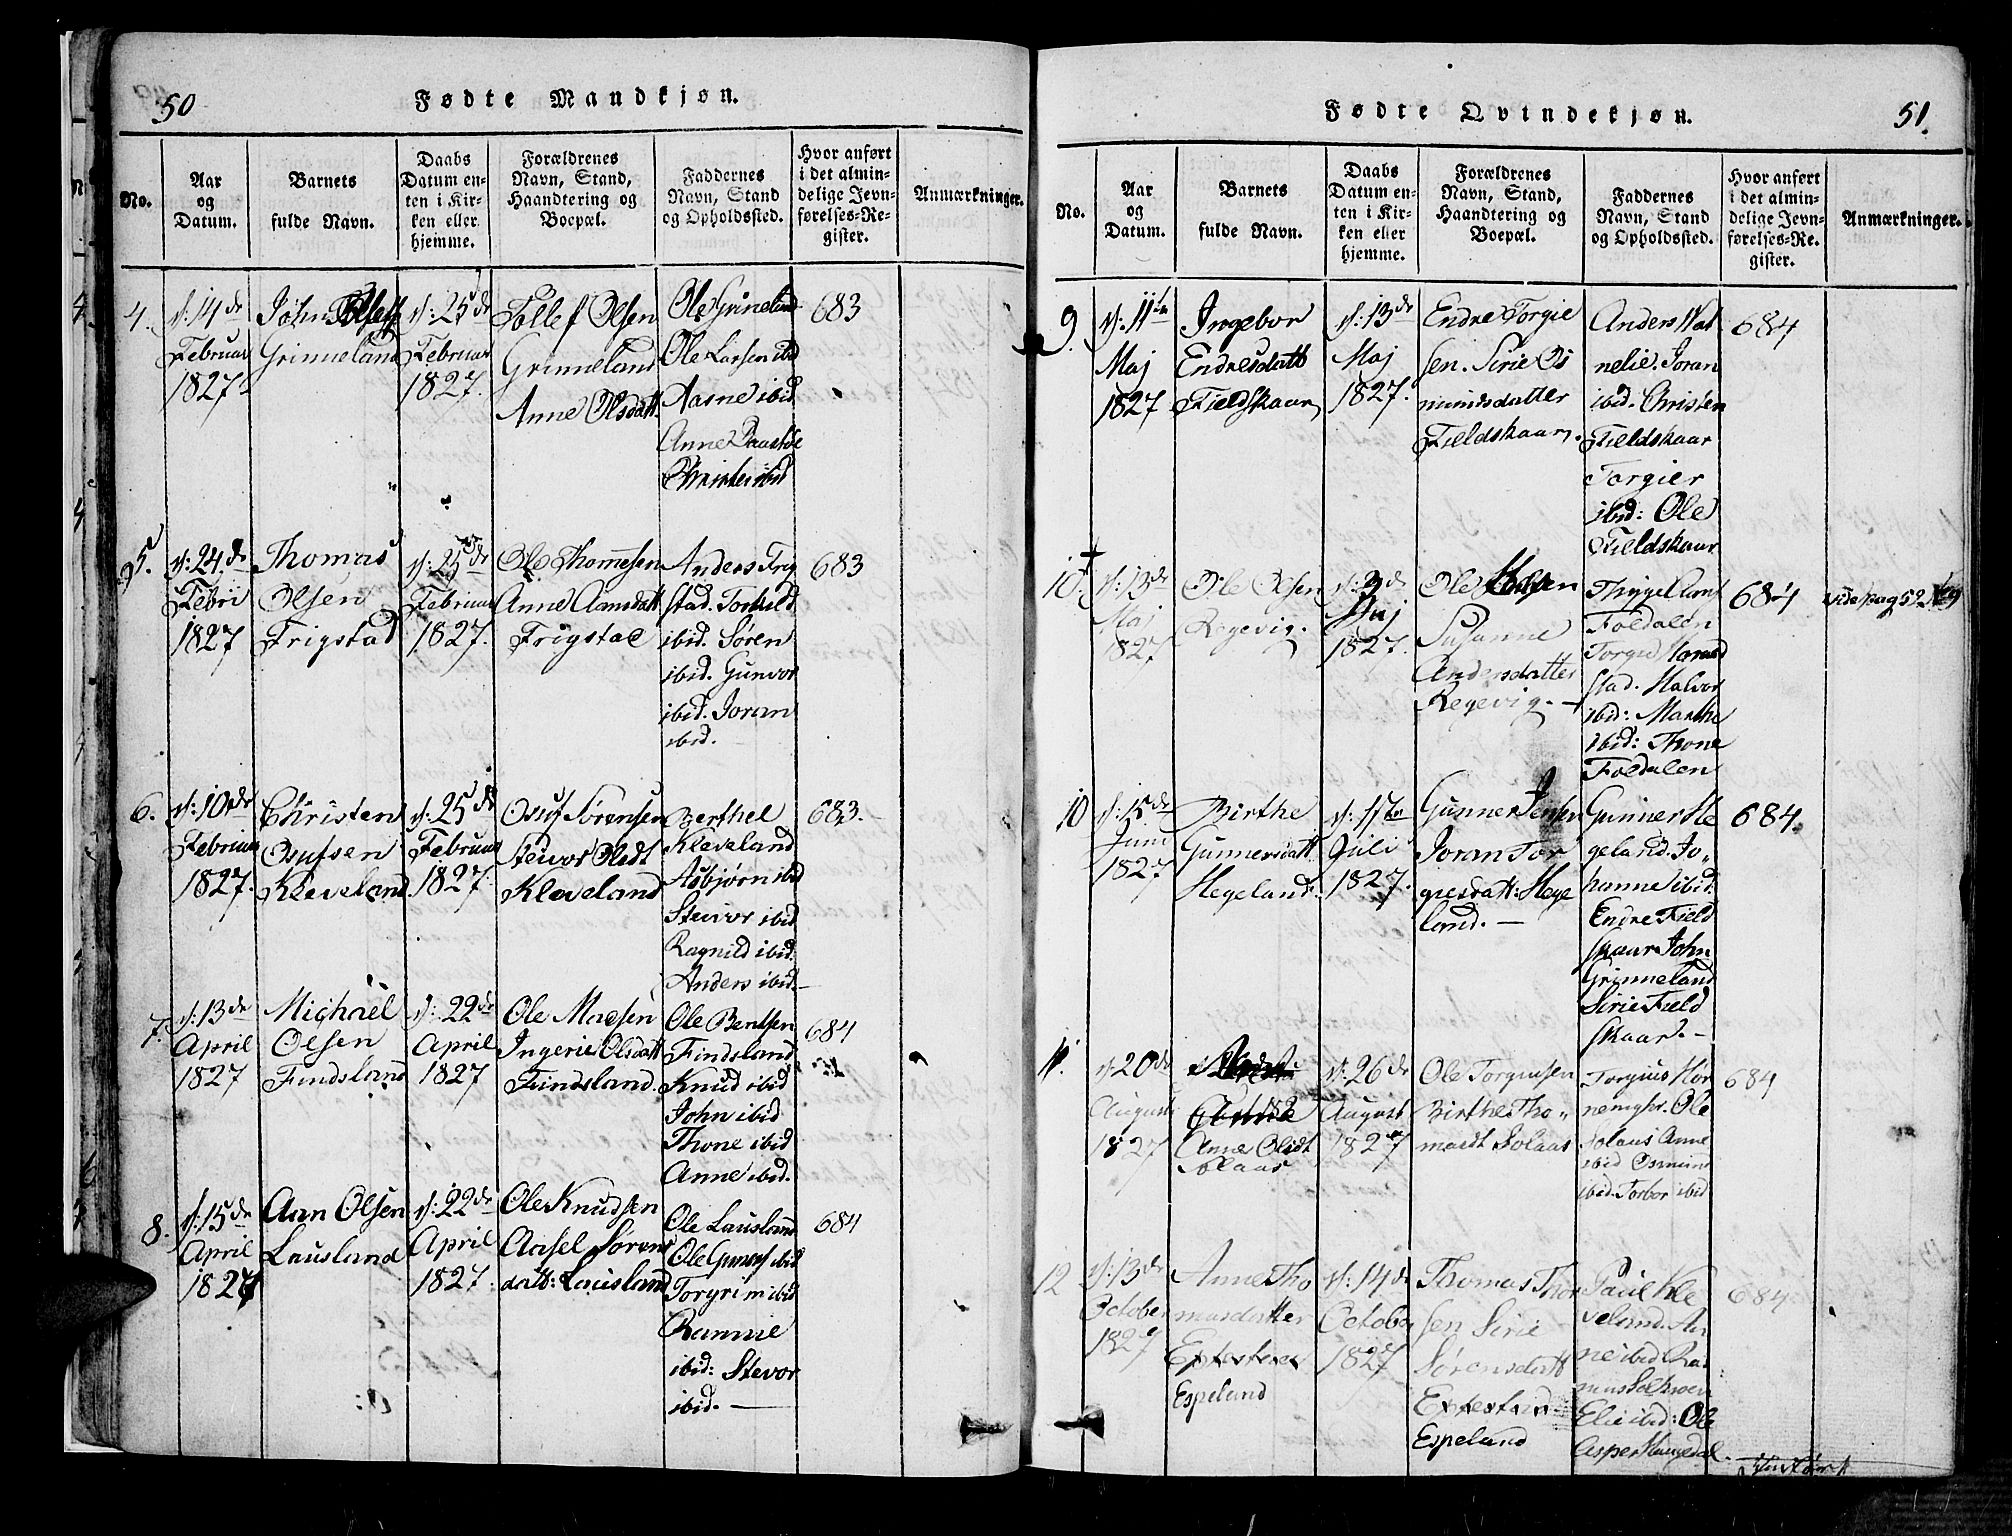 50
Fødte Mandkjøn.
No.
Aar
og
Datum.
Barnets
fulde Navn.
Daabs
Datum en-
ten i Kir-
ken eller
hjemme.
Forældrenes
Navn, Stand,
Haandtering og
Boepæl.
Faddernes
Navn, Stand
og Opholdssted.
Hvor anført
i det almin-
delige Jevn-
førelses-Re-
gister.
Anmærkninger.
4.
d: 14 de
Februar
1827
John
Grinneland
d: 25 de
Februar
1827.
Tollef Olsen
Grinneland
Anne Olsdatt
Ole Grineland
Ole Larsen ibd
Aasne ibid
Anne
Christen ibid
683
5.
d: 24. de
Febri
1827
Thomas
Olsen
Frigstad
d: 25 de
Februar
1827.
Ole Thomesen
Anne Aansdatt
Frigstad
Anders Frig
stad. Torkild
ibid. Søren
ibid. Gunvor
ibid. Joran
ibid.
683
6.
d: 10 de
Februar
1827.
Christen
Osufsen
Kleveland
d: 25 de
Februar
1827.
Osuf Sørensen
Steivor Olsdt
Kleveland
Berthel
Kleveland
Asbjørn ibd
Steivor ibid
Ragnild ibid.
Anders ibid.
683.
7.
d: 13 de
April
1827
Michael
Olsen
Findsland
d: 22 de
April
1827
Ole Madsen
Ingerie Olsdatt
Findsland.
Ole Bentsen
Findsland
Knud ibid
John ibid
Thone ibid
Anne ibid.
684
8.
d: 15 de
April
1827
Aan Olsen
Lausland
d: 22 de
April
1827.
Ole Knudsen
Aasel Sørens
datt: Lausland
Ole Lausland
Ole Gunars ibid
Torgrim ibid
Rannie
ibid: Stevor
ibid.
684
Fødte Qvindekjøn.
51.
No.
Aar
og
Datum.
Barnets
fulde Navn.
Daabs
Datum en-
ten i Kir-
ken eller
hjemme.
Forældrenes
Navn, Stand,
Haandtering og
Boepæl.
Faddernes
Navn, Stand
og Opholdssted.
Hvor anført
i det almin-
delige Jevn-
førelses-Re-
gister.
Anmærkninger.
9.
d: 11 te
Maj
1827
Ingebor
Endresdatt
Fieldskaar
d: 13 de
Maj
1827.
Endre Torgie
sen. Sirie Os
mundsdatter
Fieldskaar.
Anders Wat
nelie. Joran
ibid. Christen
Fieldskaar
Torgier
ibid: Ole
Fieldskaar
684
10.
d: 13 de
Maj
1827
Ole Olsen
Regevig.
d: 3 de
Maj
1827.
Ole
Susanne
Andersdatter
Regevig.
Foldalen
Torgie
stad. Halvor
ibid: Marthe
ibid: Thone
Foldalen
684
vide pag 52 No 9
10
d: 15 de
Juni
1827
Birthe
Gunnersdatt
Hegeland.
d: 1 ste
Juli
1827.
Gunner Jensen
Joran Tor
giesdatt: Hege
land.
Gunner He
geland. Jo
hanne ibid:
Endre Field
skaar John
Grinneland
Sirie Field
skaar.
684.
11.
d. 20 de
August
1827
Anne Olsdt
Solaas
d: 26 de
August
1827
Ole Torgiusen
Birthe Tho
masdt Solaas
Torgius Hør
Ole
Solaas Anne
ibid Osmund
ibid. Torbor ibid
684
12
d: 13 de
October
1827
Anne Tho
masdatter
Espeland
d: 14 de
October
1827
Thomas Thor
sen Sirie
Sørensdatt
Espeland
Paul Kle
veland. An
ne ibid Ras
mus
Elie ibid: Ole
Asper
684.